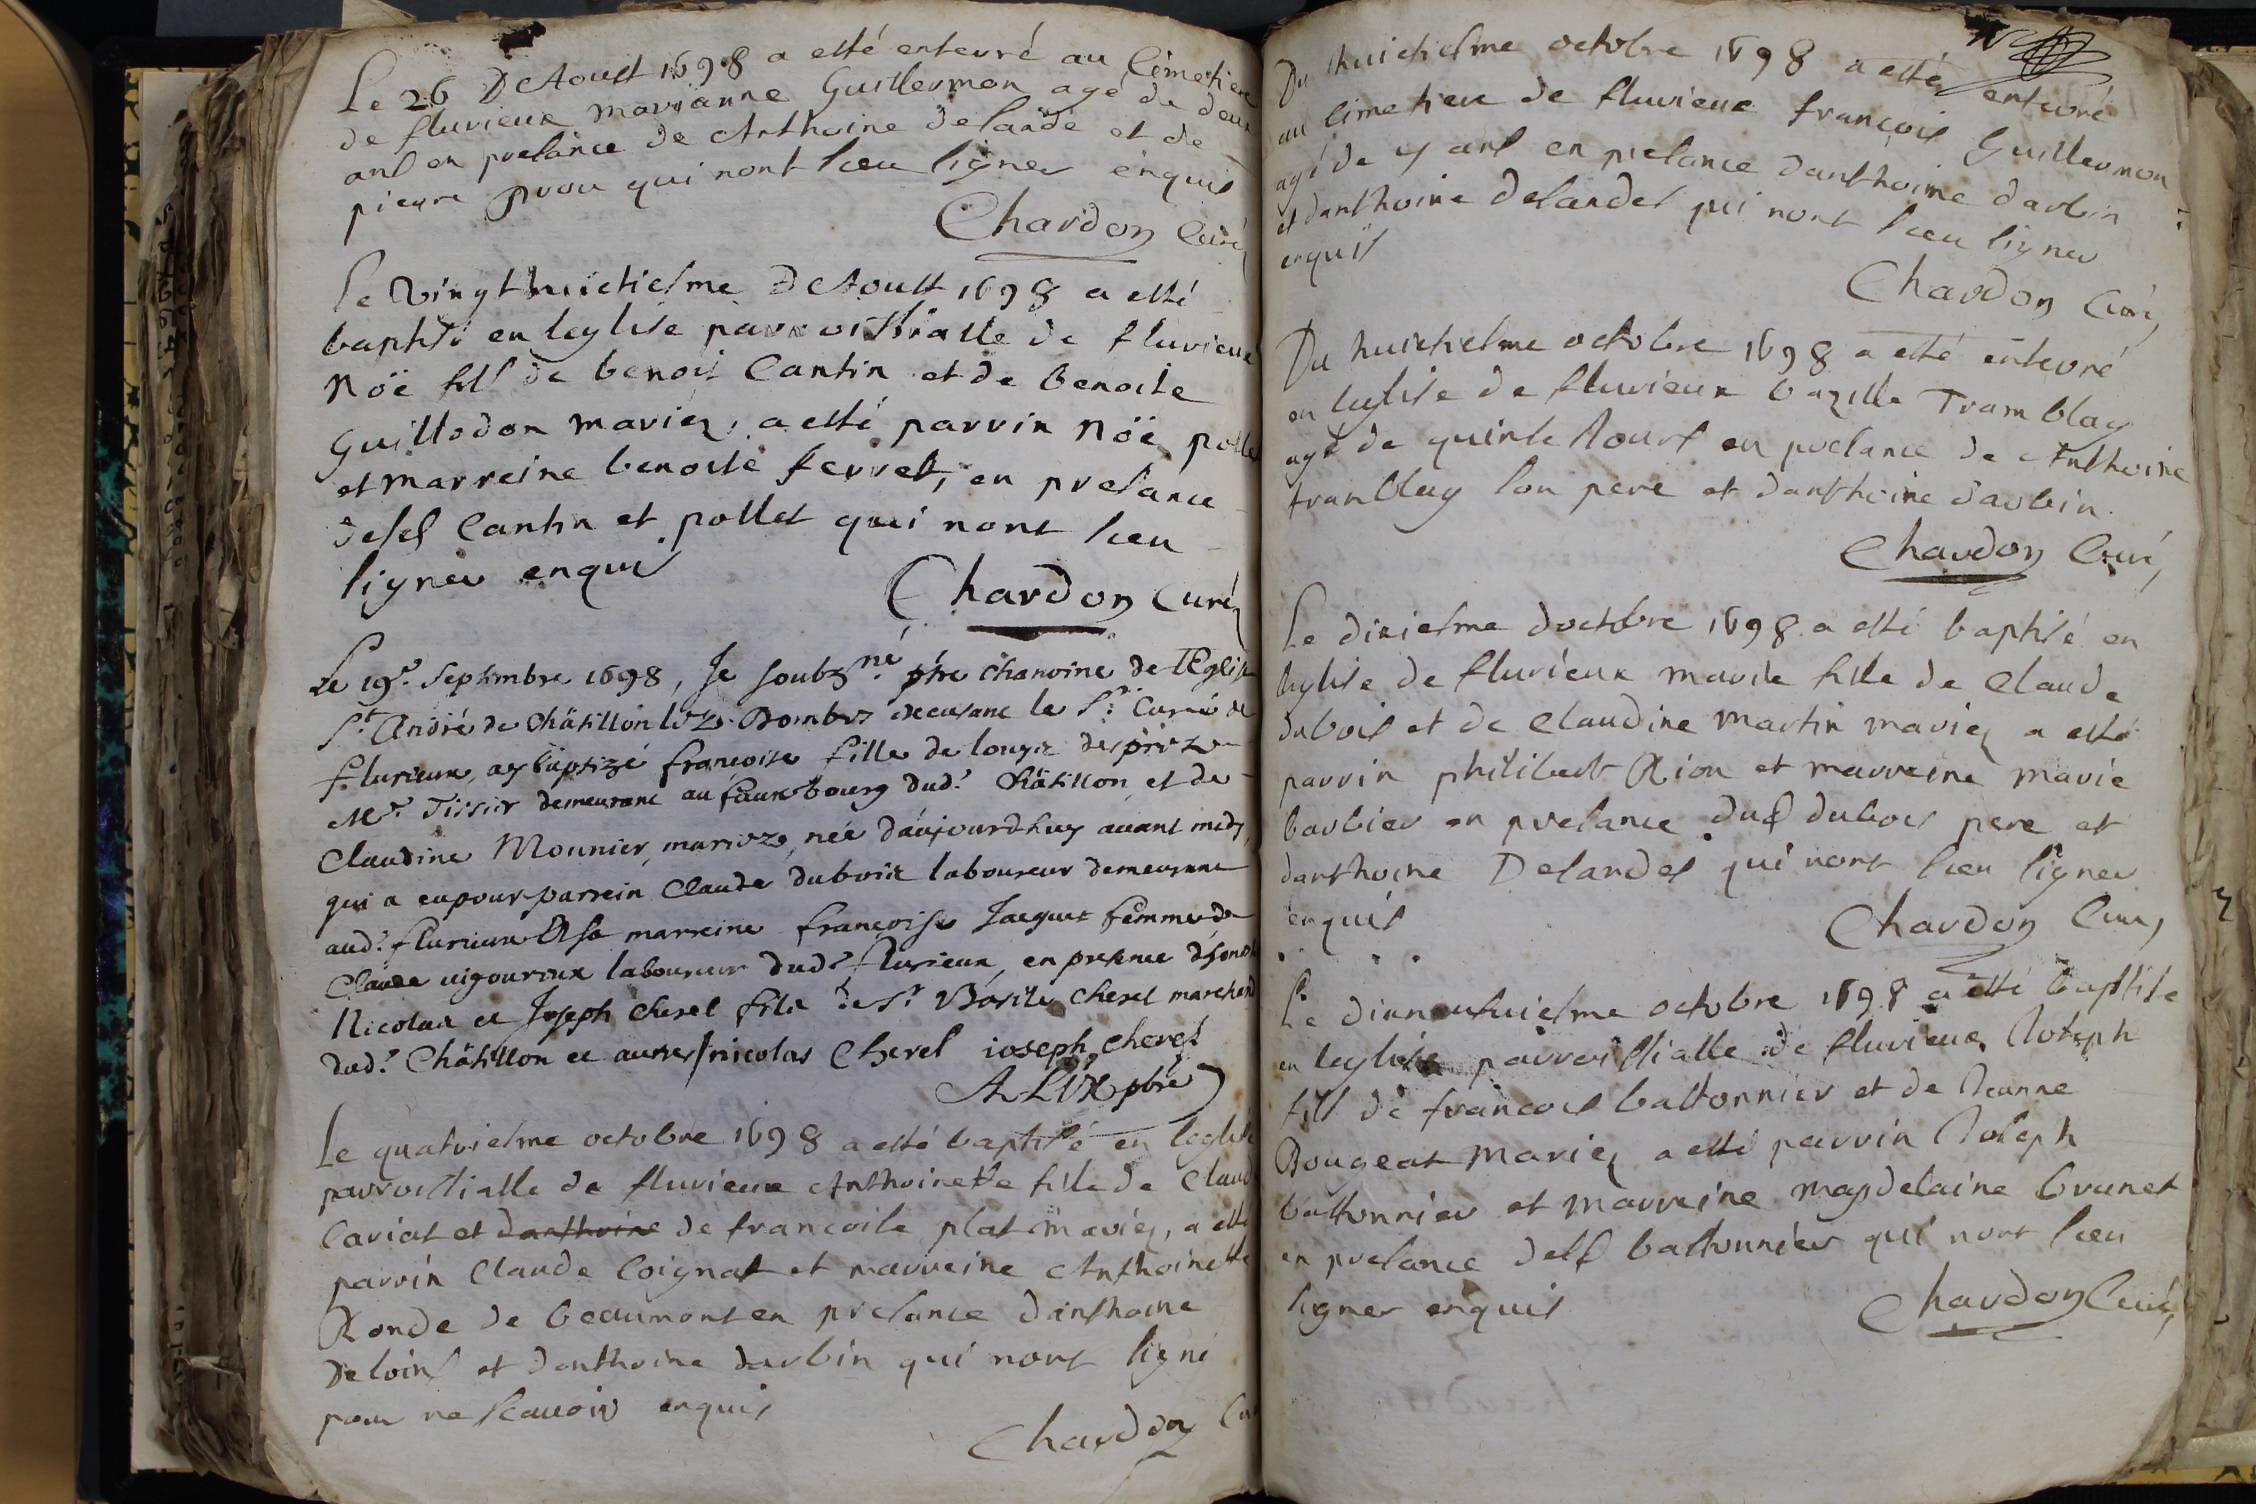 Le 26 D Aoust 1698 a esté enterré au Cimetiere
de fluvieux marianne Guillermon agé de deux
ans en presance de Anthoine delande et de
pierre prou qui nont sceu signer enquis
Chardon Curé
Le vingthuictiesme D Aoust 1698 a esté
baptisé en leglise parroissialle de fluvieux
Nöe fils de benoit Cantin et de benoite
Guillodon mariez, a esté parrin Nöe pollet
et marreine benoite ferret, en presance
desd Cantin et pollet qui nont sceu
signer enquis
Chardon Curé
Le 19e. Septembre 1698, Je soubzné. pbre chanoine de l'Eglise
St. André de Châtillon lez Dombes excusant le Sr. Curé de
flurieux, ay baptizé françoise fille de louys desprez
Me. Tissier demeurant au fauxbourg dud. Châtillon, et de
Claudine Mounier, mariez, née d'aujourdhuy avant midy,
qui a eu pour parrein Claude duboix laboureur demeurant
aud. flurieux Et sa marreine françoise Jaquet femme de
Claude vigoureux laboureur dud. flurieux, en presence d'honor
Nicolas et Joseph cherel fils de Sr. Basile cherel marchand
dud. Châtillon et autres / nicolas Cherel ioseph cherel
ALIX pbre
Le quatriesme octobre 1698 a esté baptisé en leglise
parroissialle de fluvieux Anthoinette fille de Claud
Cariat et danthoine de francoise plat mariez, a esté
parrin Claude Coignat et marreine Anthoinette
Ronde de beaumont en presance danthoine
Deloins et danthoine darbin qui nont signé
pour ne scauoir enquis
Chardon Cu
Du huictiesme octobre 1698 a esté enterré
au Cimetiere de fluvieux françois Guillermon
agé de 4 ans en presance danthoine darbin
et danthoine delandes qui nont sceu signer
enquis
Chardon Curé
Du huictiesme octobre 1698 a esté enterré
en leglise de fluvieux bazille Tramblay
agé de quinse Jours en presance de Anthoine
tramblay son pere et danthoine darbin
Chardon Curé
Le dixiesme doctobre 1698 a esté baptisé en
leglise de fluvieux marie fille de Claude
dubois et de Claudine martin mariez a esté
parrin philibert Rion et marreine marie
barbier en presance dud dubois pere et
danthoine Delandes qui nont sceu signer
enquis
Chardon Curé
Le dixneuhuiesme octobre 1698 a esté baptise
en leglise parroissialle de fluvieux Joseph
fils de francois bastonnier et de Jeanne
Rougeat mariez a esté parrin Joseph
bastonnier et marreine magdelaine brunet
en presance desd bastonnier qui nont sceu
signer enquis
Chardon Curé